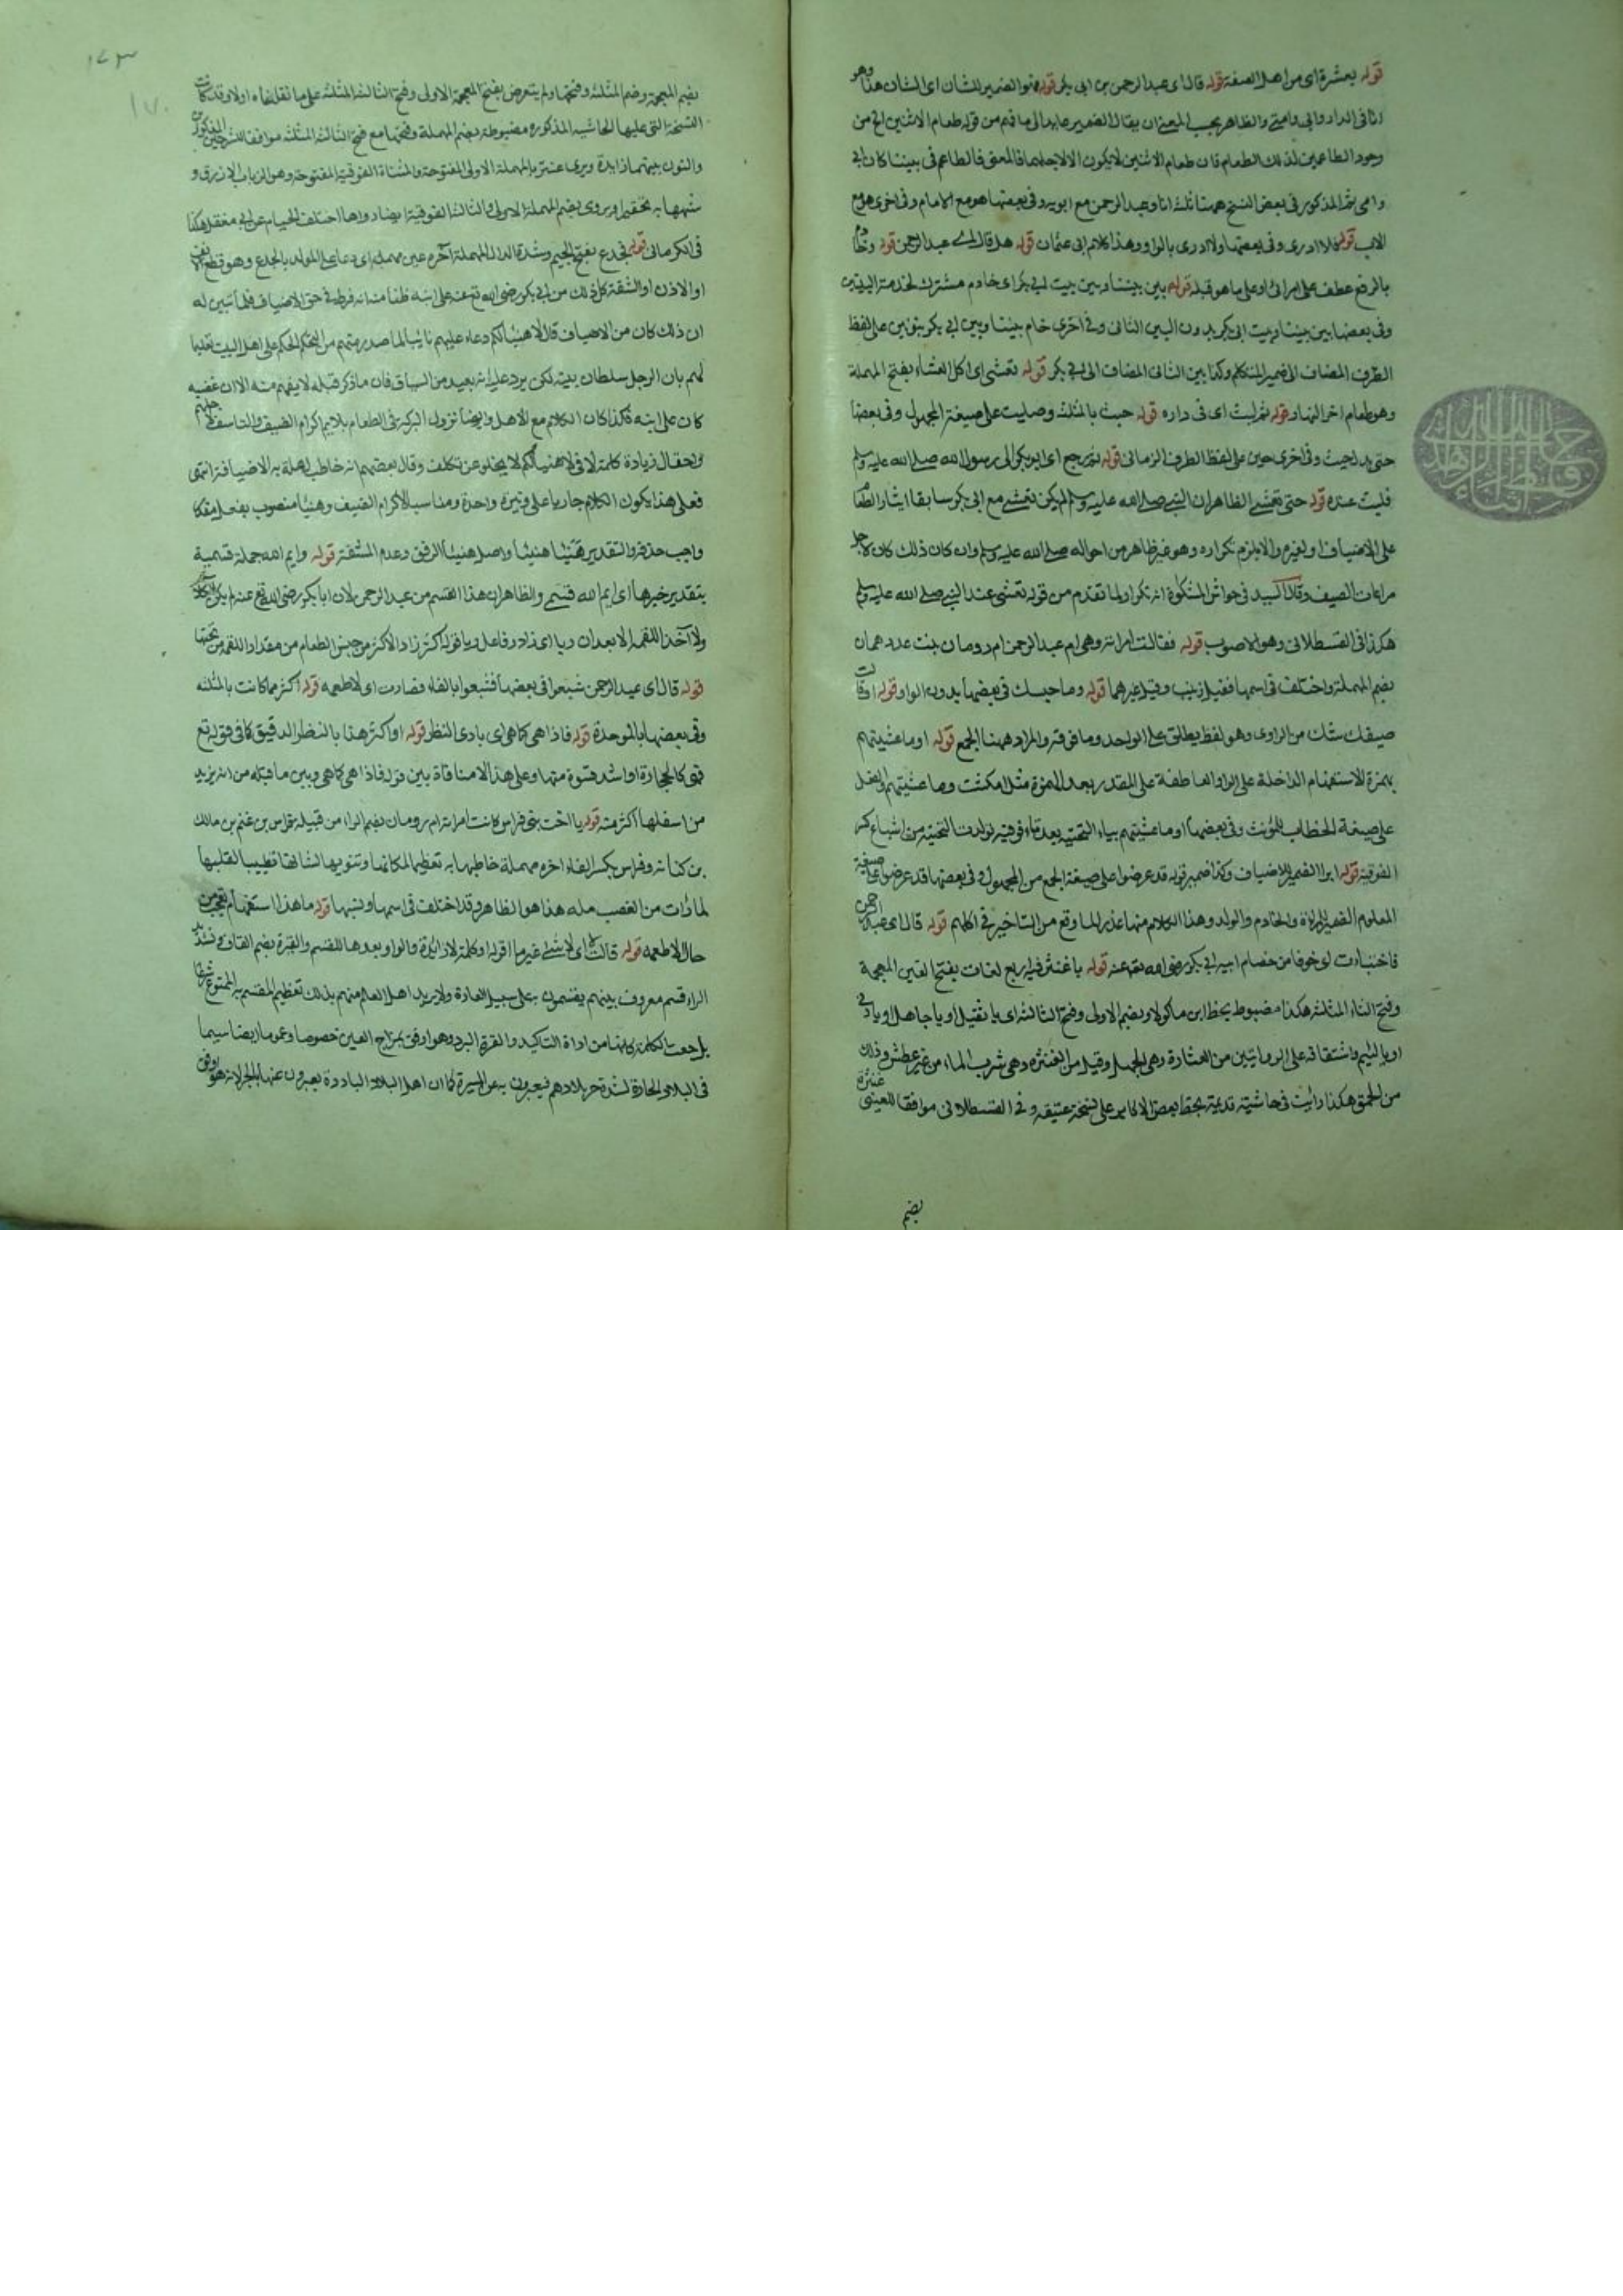 قوله بعشرة اى من اهل الصفة قوله قال اى عبد الرحمن بن ابى بكر قوله فهو الضمير للشان اى الشان هذا وهو
انا فى الدار وابى وامى والظاهر بحسب المعنى ان يقال الضمير عايد الى ما فهم من قوله طعام الاثنين الخ من
وجود الطاعمين لذلك الطعام فان طعام الاثنين لا يكون الا لاجلهما فالمعنى فالطاعم فى بيتنا كان ابى
وامى ثم المذكور فى بعض النسخ همنا ثلثة انا وعبد الرحمن مع ابويه وفى بعضها هو مع الامام وفى اخرى هو مع
الاب قوله فلا ادرى وفى بعضها ولا ادرى بالواو وهذا كلام ابى عثمان قوله هل قال اى عبد الرحمن قوله وخادم
بالرفع عطف على امراتى او على ما هو قبله قوله بين بيتنا وبين بيت ابى بكر اى خادم مشترك لخدمة البيتين
وفى بعضها بين بيتنا وبيت ابى بكر بدون البين الثانى وفى اخرى خادم بيتنا وبين ابى بكر بنونين على لفظ
الظرف المضاف الى ضمير المتكلم وكذا بين الثانى المضاف الى ابى بكر قوله تعشى اى اكل العشاء بفتح المهملة
وهو طعام اخر النهار قوله ثم لبث اى فى داره قوله حيث بالمثلثة وصليت على صيغة المجهول وفى بعضها
حتى بدل حيث وفى اخرى حين على لفظ الظرف الزمانى قوله ثم رجع اى ابو بكر الى رسول الله صلى الله عليه وسلم
فلبث عنده قوله حتى تعشى الظاهر ان النبى صلى الله عليه وسلم لم يكن تعشى مع ابى بكر سابقا ايثارا لطعام
على الاضياف او لغيره والا يلزم تكراره وهو غير ظاهر من احواله صلى الله عليه وسلم وان كان ذلك كان لاجل
مراعات الضيف وقال السيد فى حواشى المشكوة انه تكرار لما تقدم من قوله تعشى عند النبى صلى الله عليه وسلم
هكذا فى القسطلانى وهو الاصوب قوله فقالت امراته وهى ام عبد الرحمن ام رومان بنت عدهمان
بضم المهملة واختلف فى اسمها فقيل زينب وقيل غيرهما قوله وما حبسك فى بعضها بدون الواو قوله او قالت
ضيفك شك من الراوى وهو لفظ يطلق على الواحد وما فوقه والمراد ههنا الجمع قوله اوما عشيتهم
بهمزة الاستفهام الداخلة على الواو العاطفة على المقدر بعد الهمزة مثل امكثت وما عشيتهم والفعل
على صيغة الخطاب للمؤنث وفى بعضها اوما عشيتيهم بياء التحتية بعد تاء فوقية تولدت التحتية من اشباع كسر
الفوقية قوله ابوا الضمير للاضياف وكذا ضمير قوله قد عرضوا على صيغة الجمع من المجهول وفى بعضها قد عرضوا على صيغة
المعلوم الضمير للمراة والخادم والولد وهذا الكلام منها عذر لما وقع من التاخير فى اكلهم قوله قال اى عبد الرحمن
فاختبات اى خوفا من خصام ابيه ابى بكر رضى الله تعه عنه قوله يا غنثر فيه اربع لغات بفتح الغين المعجمة
وفتح الثاء المثلثة هكذا مضبوط بخط ابن ماكولا وبضم الاولى وفتح الثالثة اى يا ثقيل او يا جاهل او يا دنى
او يا لئيم واشتقاقه على الروايتين من الغثارة وهى الجهل وقيل من الغنثرة وهى شرب الماء من غير عطش وذلك
من الحمق هكذا رايت فى حاشية قديمة بخط بعض الاكابر على نسخة عتيقة وفى القسطلانى موافقا للعينى غنثرة
بضم
١٧٣
١٧٠
بضم المعجمة وضم المثلثة وفتحها ولم يتعرض بفتح المعجمة الاولى وفتح الثالثة المثلثة على ما نقلناه اولا وقد كانت
النسخة التى عليها الحاشية المذكوره مضبوطة بضم المهملة وفتحها مع فتح الثالثة المثلثة موافقا للشرحين المذكورين
والنون بينهما زايدة ويروى عنتر بالمهملة الاولى المفتوحة والمثناة الفوقية المفتوحة وهو الذباب الازرق و
شبهها به تحقيرا ويروى بضم المهملة الاولى والثالثة الفوقية ايضا رواها احتلف الخيام عن ابى معقل هكذا
فى الكرمانى قوله فجدع بفتح الجيم وشدة الدال المهملة آخره عين مهملة اى دعا على الولد بالجدع وهو قطع الانف
او الاذن او الشفة كل ذلك من ابى بكر رضى الله تع عنه على ابنه ظنا منه انه فرط فى حق الاضياف فلما تبين له
ان ذلك كان من الاضياف قال لا هنيئا لكم دعاء عليهم تاديبا لما صدر منهم من التحكم الحكم على اهل البيت تغلبا
لهم بان الرجل سلطان بيته لكن يرد عليه انه بعيد من السياق فان ما ذكر قبله لا يفهم منه الا ان غضبه
كان على ابنه فكذا كان الكلام مع الاهل وايضا نزول البركة فى الطعام يلايم اكرام الضيف والتاسف لاجلهم
واحتمال زيادة كلمة لا فى لا هنيئا لكم لا يخلو عن تكلف وقال بعضهم انه خاطب اهله به لا الاضياف انتهى
فعلى هذا يكون الكلام جاريا على وتيرة واحدة ومناسبا لاكرام الضيف وهنيئا منصوب بفعل مقدر
واجب حذفه والتقدير هنيئا هنيئا واصل هنيئا الرفق وعدم المشقة قوله وايم الله جملة قسمية
بتقدير خبرها اى ايم الله قسمى والظاهر ان هذا القسم من عبد الرحمن لان ابا بكر رضى الله تع عنه لم يكن اكلا
ولا آخذا اللقمة الا بعد ان ربا اى زاد وفاعل ربا قوله اكثر زاد الاكثر من جنس الطعام من مقدار اللقمة من تحتها
قوله قال اى عبد الرحمن شبعوا فى بعضها فشبعوا بالفاء فصارت اى الاطعمه قوله اكثر مما كانت بالمثلثة
وفى بعضها بالموحدة قوله فاذا هى كما هى اى بادى النظر قوله او اكثر هذا بالنظر الدقيق كما فى قوله تع
فهى كالحجارة او اشد قسوة منها وعلى هذا لا منافاة بين قوله فاذا هى كما هى وبين ما قبله من انه يزيد
من اسفلها اكثر منه قوله يا اخت بنى فراس كانت امراته ام رومان بضم الراء من قبيلة فراس بن غنم بن مالك
بن كنانة وفراس بكسر الفاء اخره مهملة خاطبها به تعظيما لمكانها وتنويها لشانها تطييبا لقلبها
لما رات من الغضب مله هذا هو الظاهر وقد اختلف فى اسمها ونسبها قوله ما هذا استفهام تعجب من
حال الاطعمه قوله قالت لا اى لا شئى غير ما اقوله او كلمة لا زائدة والواو بعدها للقسم والقرة بضم القاف وتشديد
الراء قسم معروف بينهم يقسمون به على سبيل العادة ولا يريد اهل العلم منهم بذلك تعظيم المقسم به الممنوع شرعا
بل جعلت الكلمة كانها من اداة التاكيد والقرة البرد وهو اوفق بمزاج العين خصوصا وعموما ايضا سيما
فى البلاد الحارة لشدة حر بلادهم فيعبرون به عن المسرة كما ان اهل البلاد الباردة يعبرون عنها بالحر لانه هو اوفق